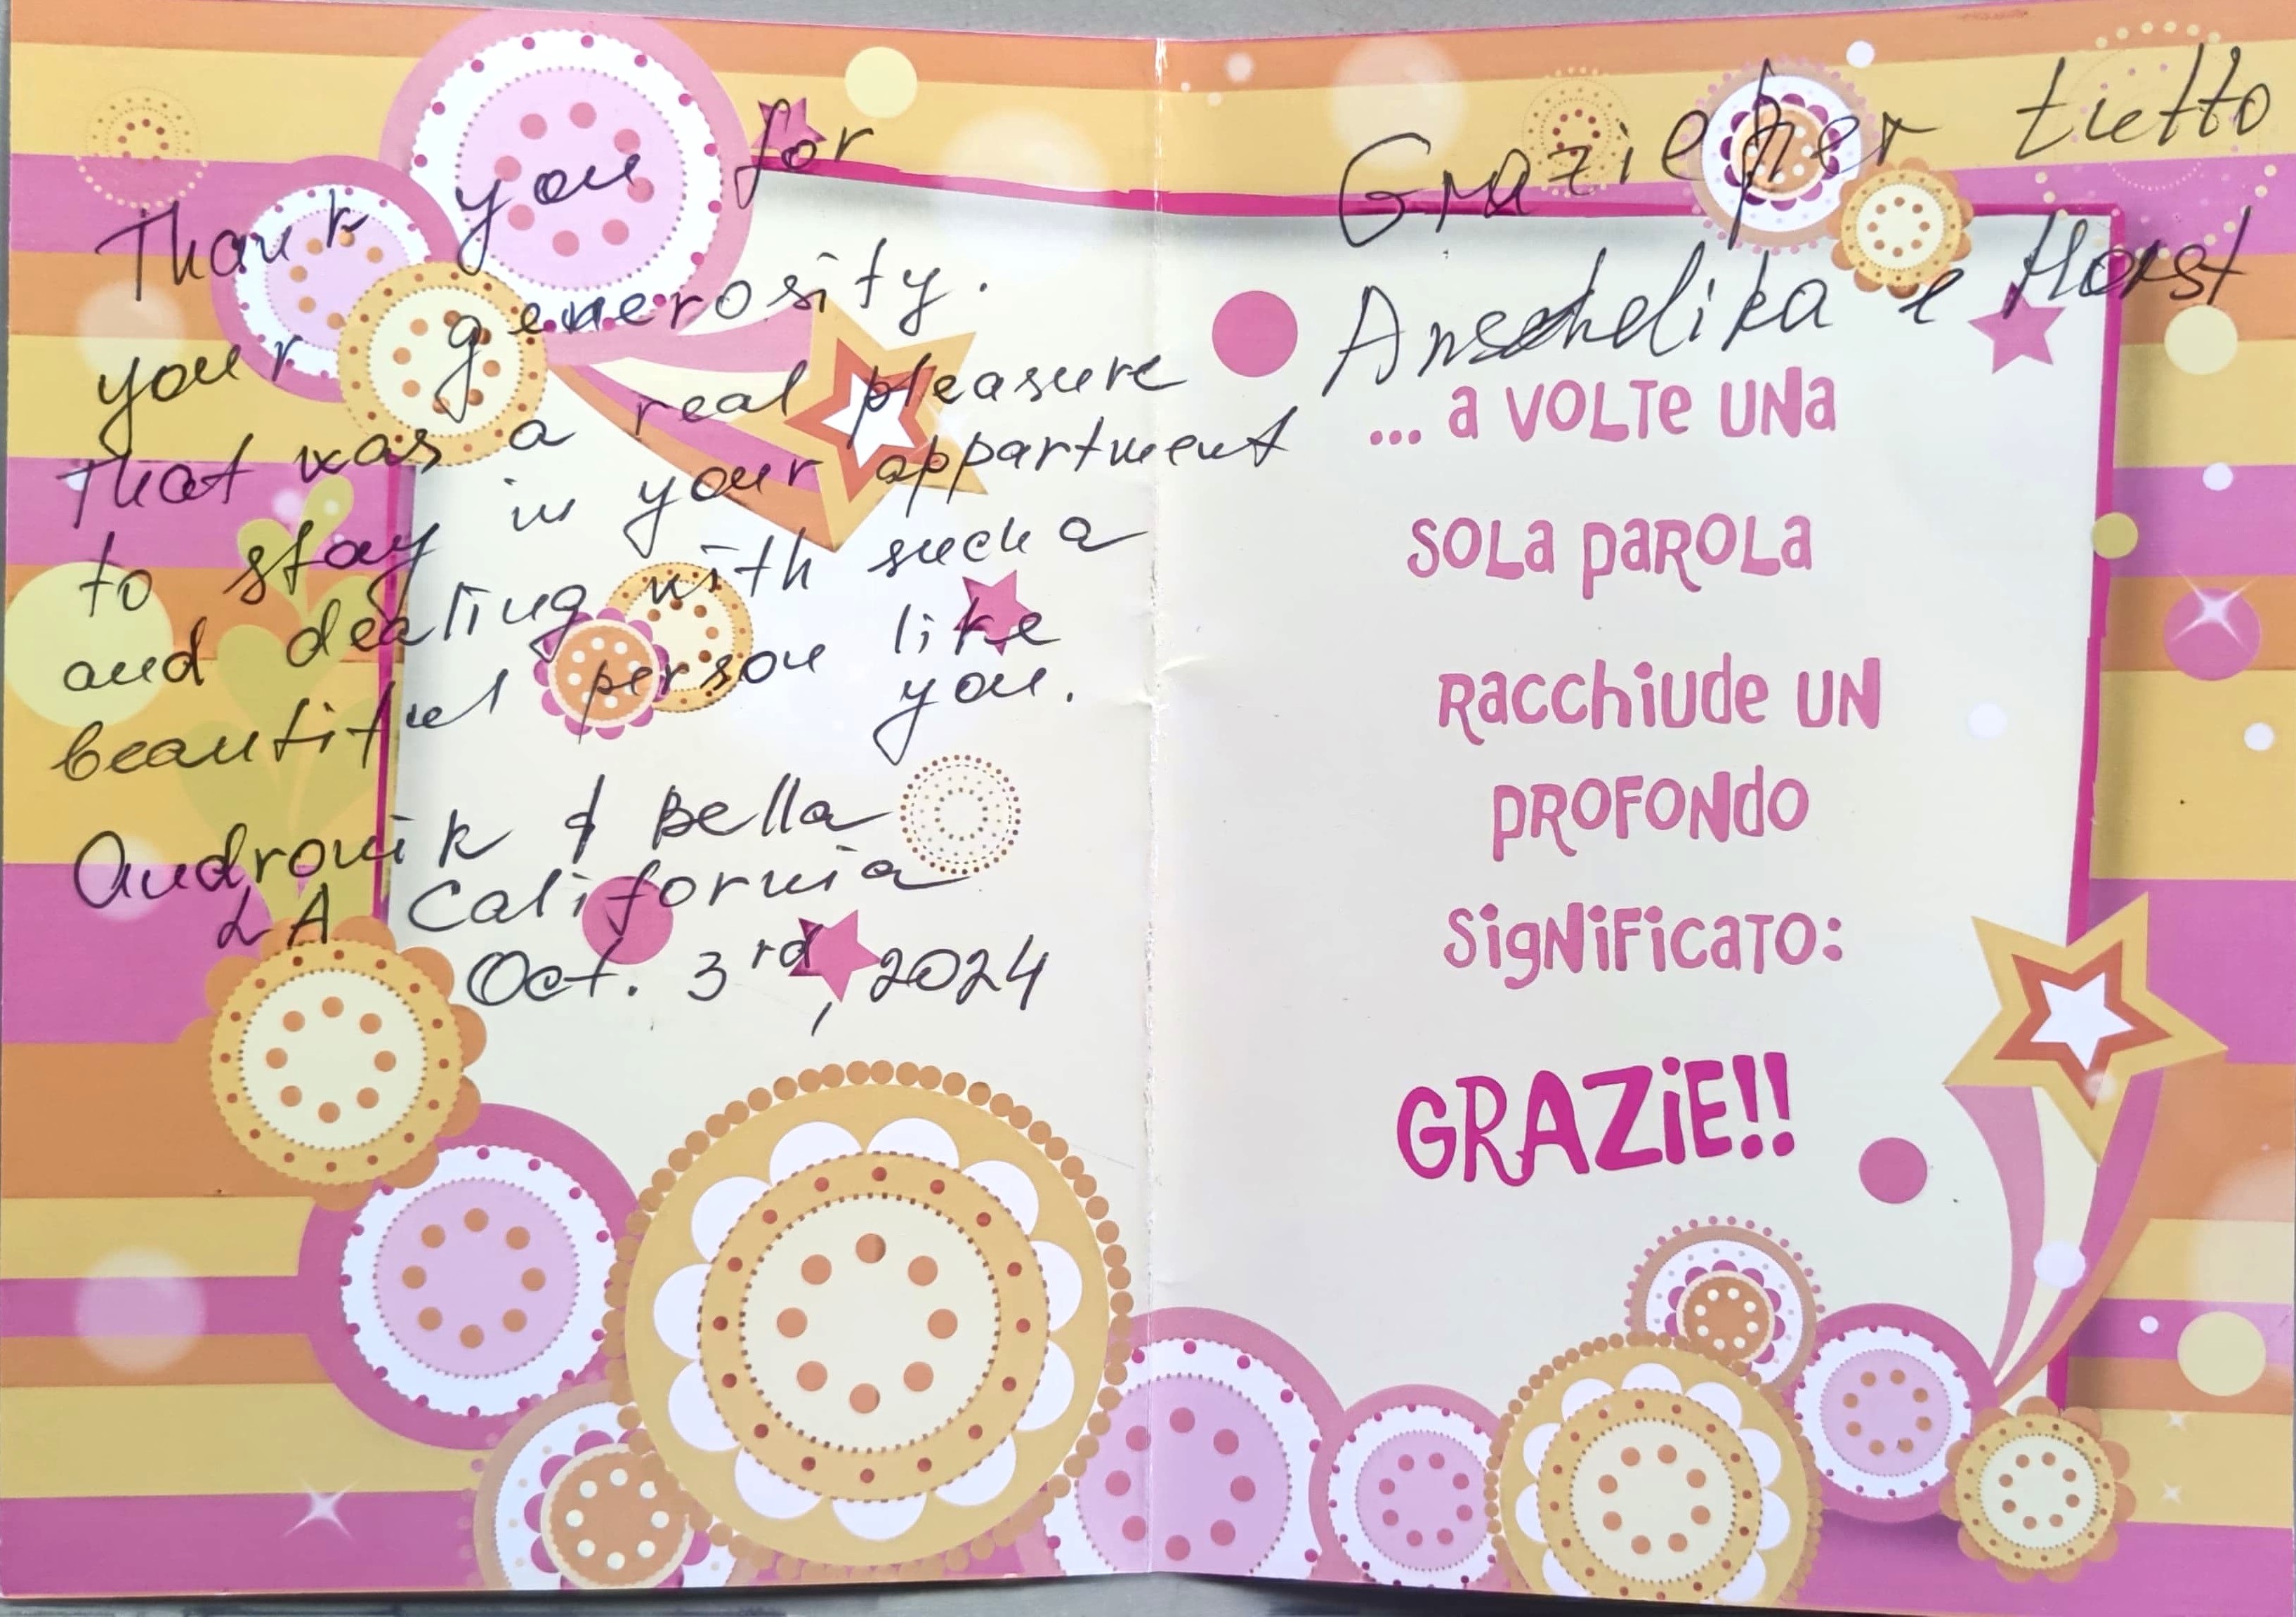 Thank you for
your generosity.
That was a real pleasure
to stay in your appartment
and dealing with such a
beautiful person like
you.
Andronik & Bella
LA California
Oct. 3rd, 2024
Grazie per tutto
Anschelika e Horst
... a VOLTE UNa
SOLa PaROLa
Racchiude UN
PROFONdO
SigNiFicaTO:
GRAZiE!!